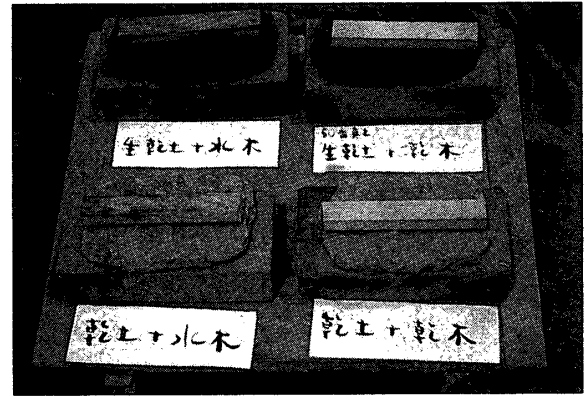 生乾土+水木
生乾土+乾木
乾土+水木
乾土+乾木